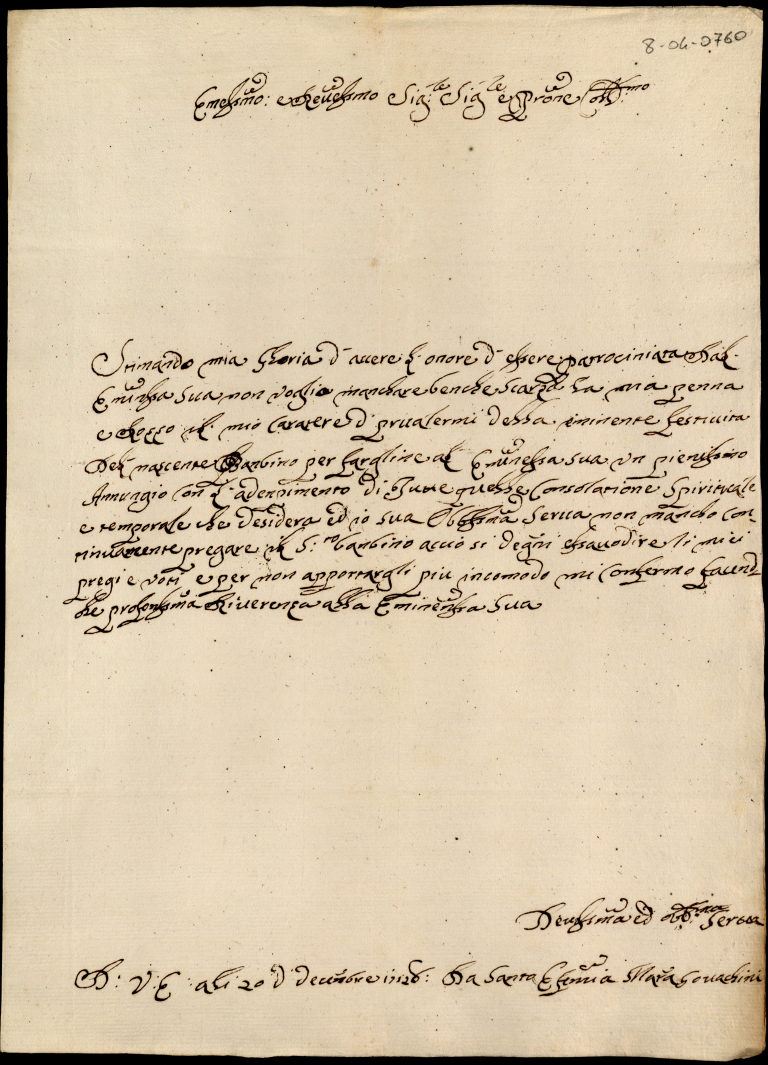 8-04-0760
Em̃essmo: e Reuessmo Sig:re Sig:re e Pprone Coll:mo
Stimando mia Gloria d'auere l'onore d'essere patrociniata dal-
Em̃inssa sua non voglio manchare benche scarza la mia penna
e Rosso il mio Caratere d'preualermi della iminente festiuita
Del nascente Banbino per fargline al Em̃inessa sua un pienissimo
Annuzio con l'adenpimento di Tutte quelle Consolatione Spirituale
e temporale che desidera ed io sua Obblissma Serua non mancho Con-
tinuamente pregare il S:to banbino accio si degni essaudire li miei
pregi e voti e per non apportargli piu incomodo mi Confermo facend-
le profonssma Riuerenza alla Eminenssa Sua
Deuossma ed obb:ma Serua
D: V: E: ali 20 d Decenbre Da Santa Efemia Maria